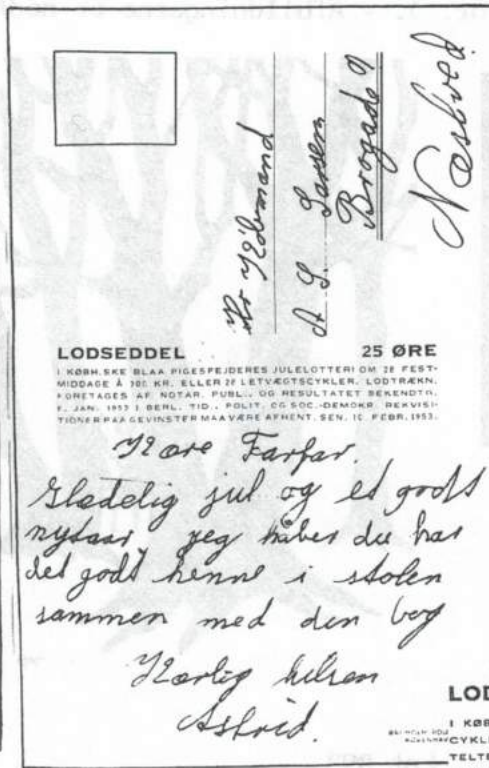 Hr Købmand
A. L. Larsen
Brogade 9
Næstved
LODSEDDEL 25 ØRE
I KØBH.SKE BLAA PIGESPEJDERES JULELOTTERI OM 28 FEST-
MIDDAGE À 100 KR. ELLER 28 LETVÆGTSCYKLER. LODTRÆKN.
FORETAGES AF NOTAR. PUBL. OG RESULTATET BEKENDTG.
JAN. 1953 I BERL. TID., POLIT. OG SOC.-DEMOKR. REKVISI-
TIONER PAA GEVINSTER MAA VÆRE AFHENT. SEN. 10. FEBR. 1953.
Kære Farfar.
Glædelig jul og et godt
nytaar jeg håber du har
det godt henne i stolen
sammen med den bog
Kærlig hilsen
Astrid.
LOD
I KØB
CYKL
TELT